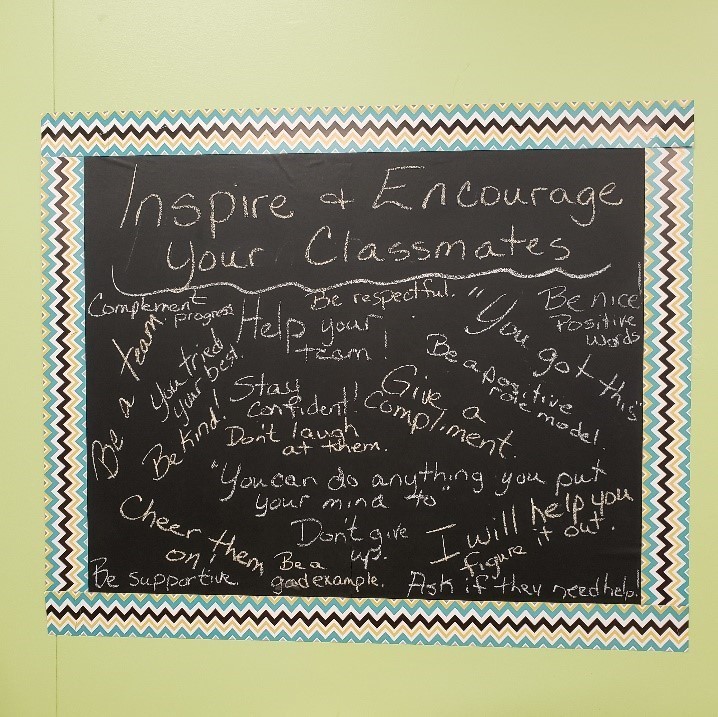 Inspire & Encourage
your Classmates
Complement
progress
Be respectful.
Be nice
Positive
words
Help your
team!
"You got this"
Be a team
You tried
your best.
Be kind!
Stay
Confident!
Don't laugh
at them.
Give a
compliment.
Be a positive
role model
"You can do anything you put
your mind to"
Cheer them
on!
Don't give
up.
I will help you
figure it out.
Be supportive.
Be a
good example.
Ask if they need help!